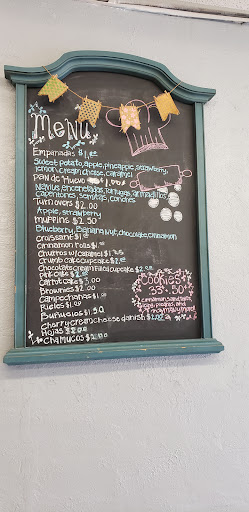 Menu
Empanadas $1.
Sweet potato, apple, pineapple, strawberry,
lemon, cream cheese, caramel
Pan de Huevo $1.00
Novias, encaneladas, tortugas, armadillos
Capentones, semitas, conches
Turnovers $2.00
Apple, strawberry
Muffins $2.50
Blueberry, Banana Nut, chocolate, cinnamon
croissant $1.
Cinnamon rolls $1.
Churros w/ caramel $1.75
Crumb cake cupcake $2.
Chocolate cream filled cupcake $2.
Pink cake $2.
Carrot cake $3.00
Brownies $2.00
Campechanas $1.
Rieles $1.
Buñuelos $1.50
Cherry cream cheese danish $2.00
Hojas $2.00
Chamucos $2.00
Cookies
3 3 .50
cinnamon, sand,
and
many many more!